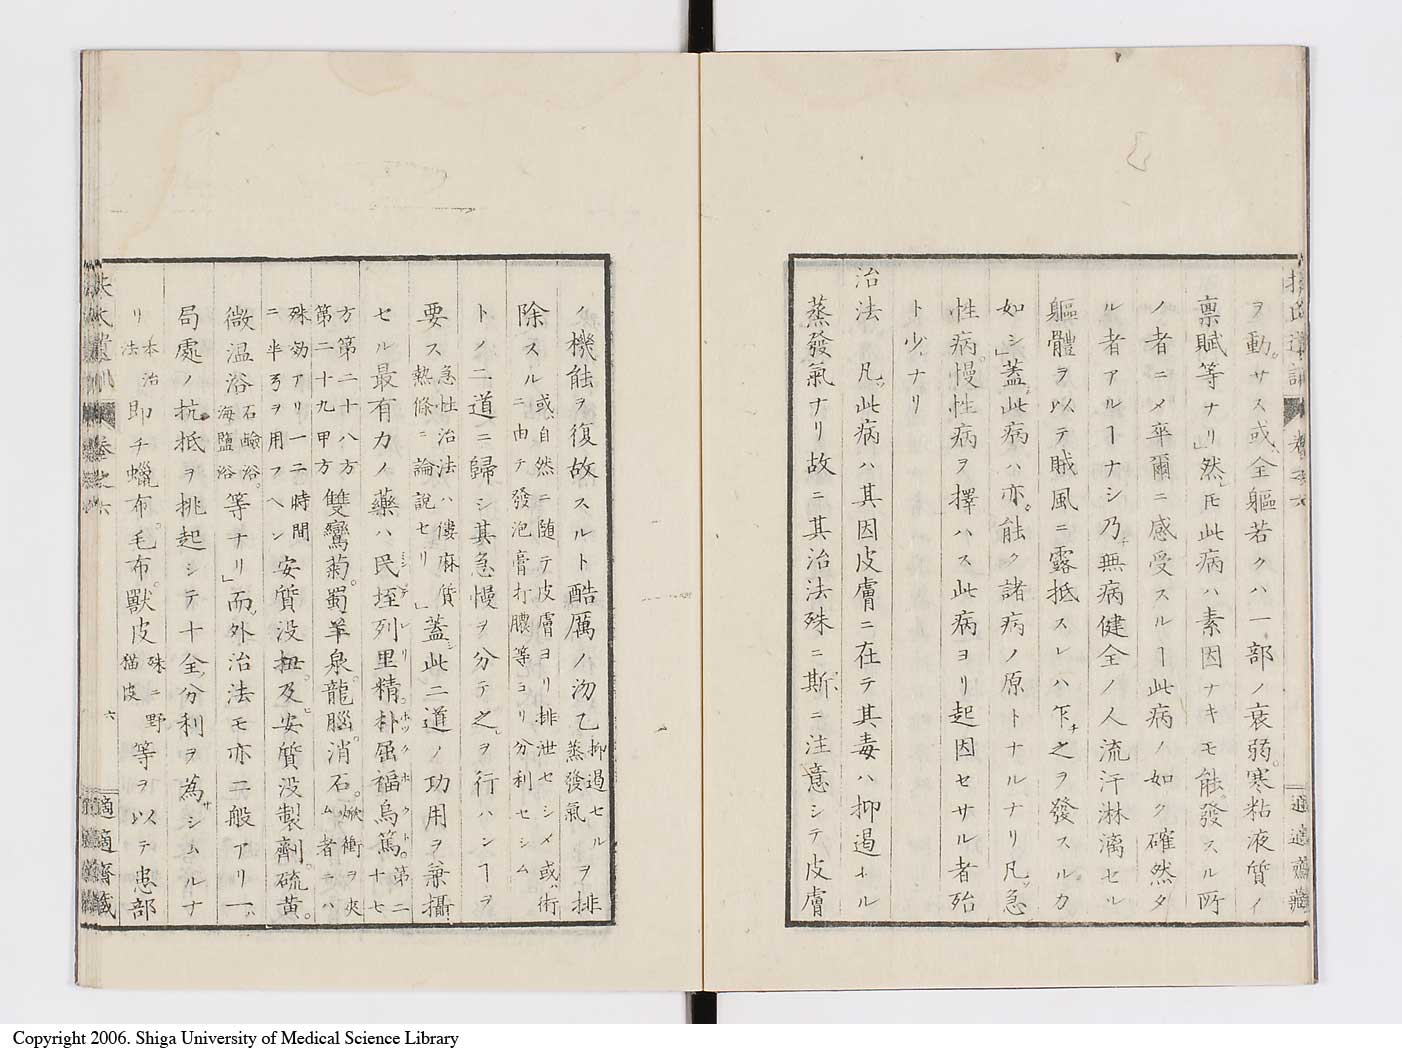 扶氏遺訓 卷之六 適適齋藏
ヲ動カサス或ハ全軀若クハ一部ノ衰弱。寒粘液質ノ
禀賦等ナリ」然𪜈此病ハ素因ナキモ能發スル所
ノ者ニ〆卒爾ニ感受スルヿ此病ノ如ク確然タ
ル者アルヿナシ乃チ無病健全ノ人流汗淋漓セル
軀體ヲ以テ賊風ニ露抵スレハ乍チ之ヲ發スルカ
如シ」蓋シ此病ハ亦能ク諸病ノ原トナルナリ凡ソ急
性病。慢性病ヲ擇ハス此病ヨリ起因セサル者殆
ト少ナリ
治法 凡ソ此病ハ其因皮膚ニ在テ其毒ハ抑遏セル
蒸發氣ナリ故ニ其治法殊ニ斯ニ注意シテ皮膚
ノ機能ヲ復故スルト酷厲ノ沕乙抑遏セル蒸發氣ヲ排
除スルニ或ハ自然ニ随テ皮膚ヨリ排泄セシメ或ハ術ニ由テ發泡膏打膿等ヨリ分利セシム
トノ二道ニ歸シ其急慢ヲ分テ之ヲ行ハンヿヲ
要ス急性治法ハ僂麻質熱條ニ論説セリ」蓋シ此二道ノ功用ヲ兼攝
セル最有力ノ藥ハ民垤列里精。朴屈福烏篤。第二十七
方第二十八方第二十九甲方雙鸞菊。蜀羊泉。龍腦。消石。焮衝ヲ夾ム者ニハ
殊効アリ一二時間ニ半弓ヲ用フヘシ安質没扭。及ヒ安質没製劑。硫黄。
微温浴石鹼浴。海鹽浴等ナリ」而乄外治法モ亦二般アリ一ハ
局處ノ抗抵ヲ挑起シテ十全分利ヲ為サシムルナ
リ本治法即チ蠟布。毛布。獸皮殊ニ野猫皮等ヲ以テ患部
扶氏遺訓 卷之六 六 適適齋藏
Copyright 2006. Shiga University of Medical Science Library